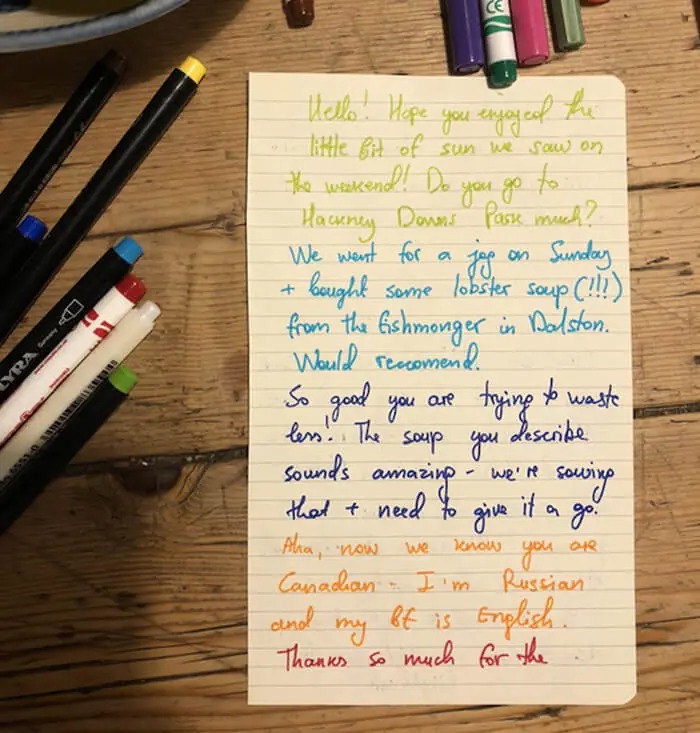 Hello! Hope you enjoyed the
little bit of sun we saw on
the weekend! Do you go to
Hackney Downs Park much?
We went for a jog on Sunday
+ bought some lobster soup (!!!)
from the fishmonger in Dalston.
Would reccomend.
So good you are trying to waste
less! The soup you describe
sounds amazing - we're saving
that + need to give it a go.
Aha, now we know you are
Canadian - I'm Russian
and my bf is English.
Thanks so much for the
LYRA
Germany
CE